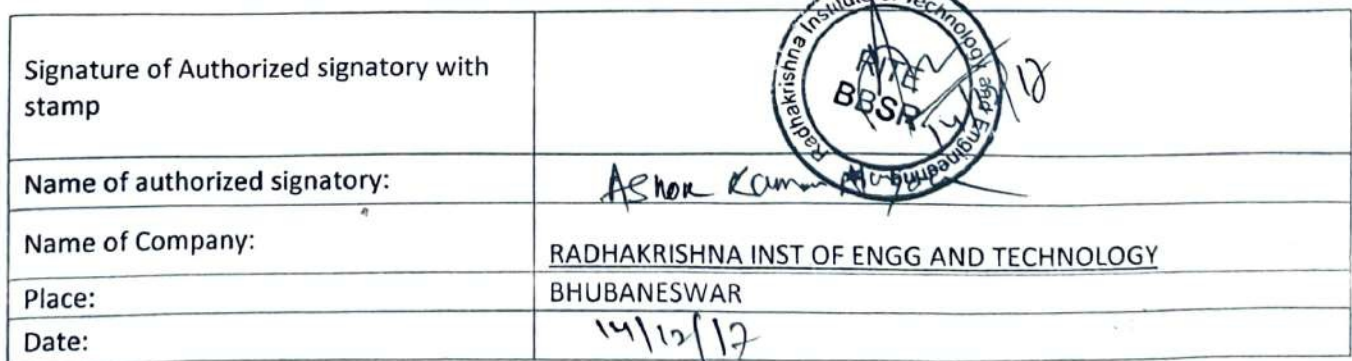 Signature of Authorized signatory with
stamp
Radhakrishna Institute of Technology and Engineering
RITE
BBSR
14/12/17
Name of authorized signatory:
Ashok Kumar
Name of Company:
RADHAKRISHNA INST OF ENGG AND TECHNOLOGY
Place:
BHUBANESWAR
Date:
14/12/17